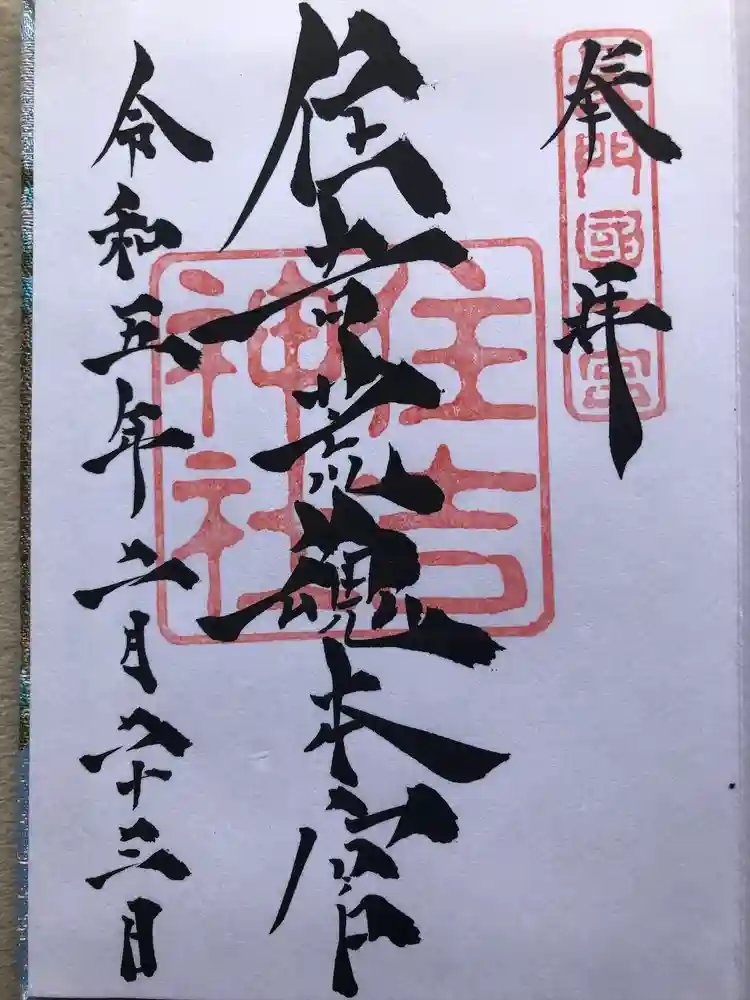 奉拝
長門國一宮
住吉荒魂本宮
住吉
神社
令和五年二月二十三日